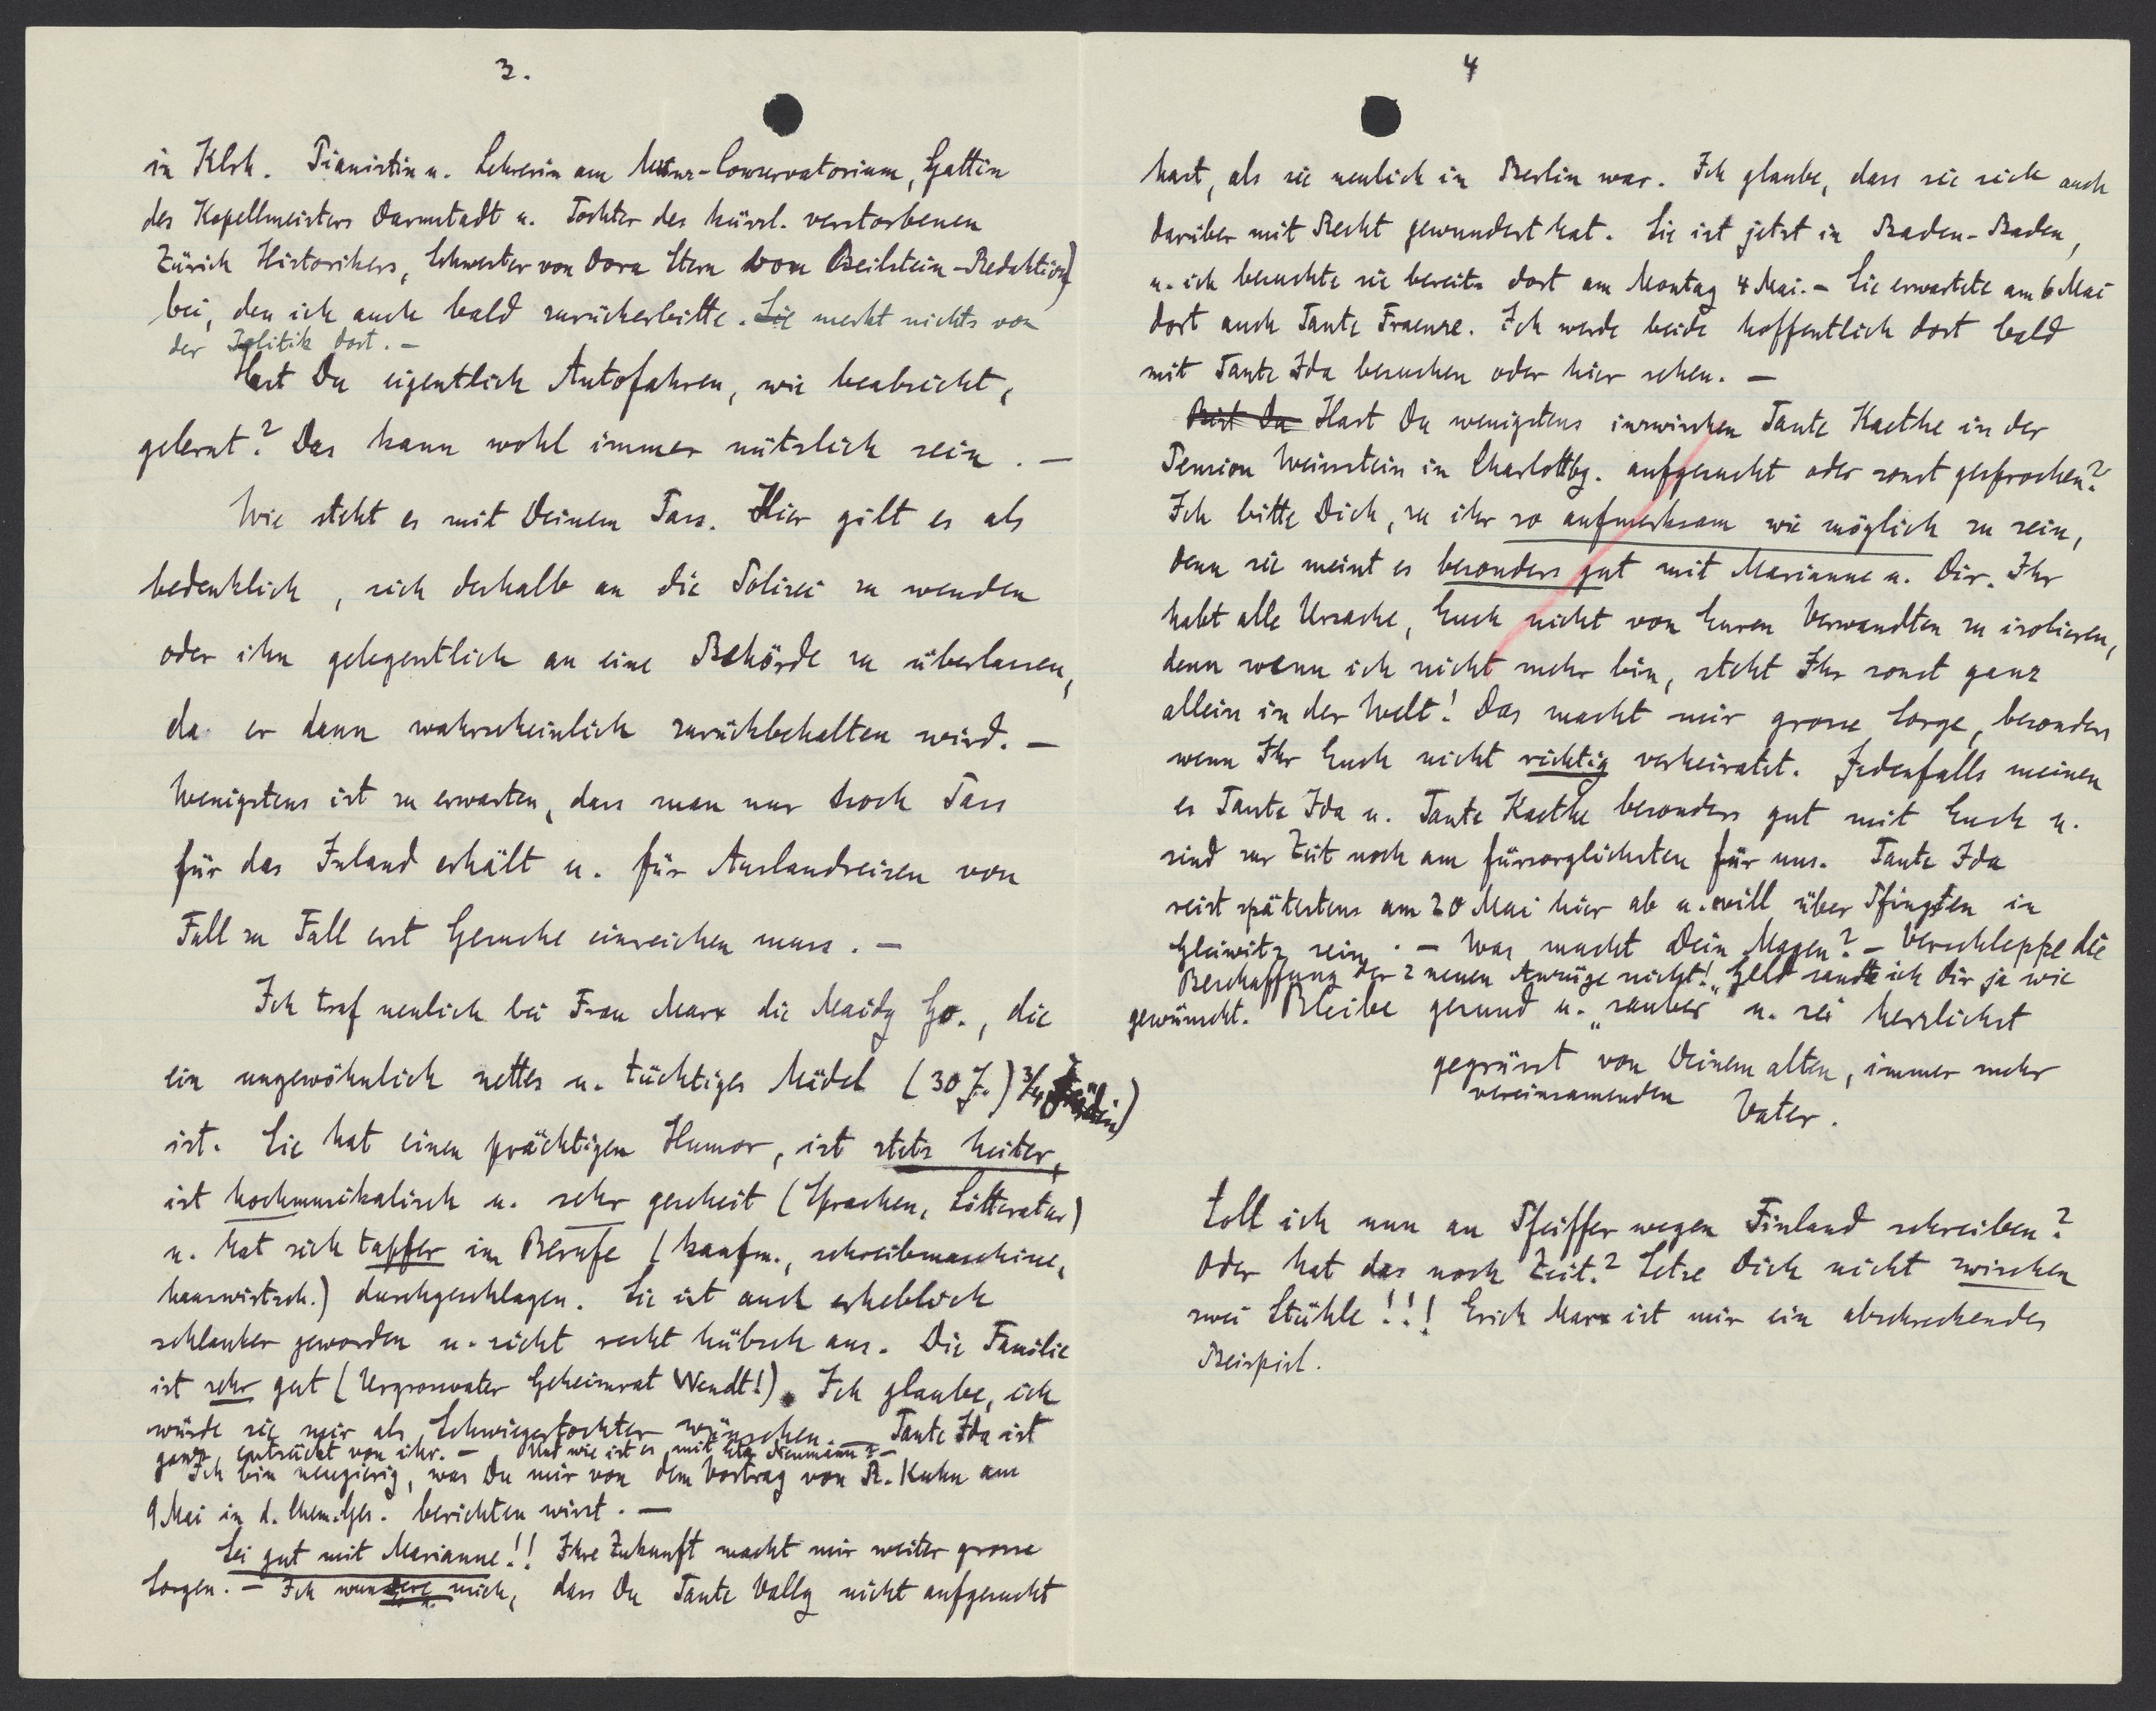 3.
in Klrh. Pianistin u. Lehrerin am Munz-Conservatorium, Gattin
des Kapellmeisters Darmstadt u. Tochter des kürzl. verstorbenen
Zürich Historikers, Schwester von Dora Stern von Beilstein-Redaktion)
bei, den ich auch bald zurückerbitte. Sie merkt nichts von
der Politik dort. -
Hast Du eigentlich Autofahren, wie beabsicht,
gelernt? Das kann wohl immer nützlich sein. -
Wie steht es mit Deinem Pass. Hier gilt es als
bedenklich, sich deshalb an die Polizei zu wenden
oder ihn gelegentlich an eine Behörde zu überlassen,
da er dann wahrscheinlich zurückbehalten wird. -
Wenigstens ist zu erwarten, dass man nur noch Pass
für das Inland erhält u. für Auslandreisen von
Fall zu Fall erst Gesuche einreichen muss. -
Ich traf neulich bei Frau Marx die Maidy Go., die
ein ungewöhnlich nettes u. tüchtiges Mädel (30 J.) 3/4
ist. Sie hat einen prächtigen Humor, ist stets heiter,
ist hochmusikalisch u. sehr gescheit (Sprachen, Litteratur)
u. hat sich tapfer im Berufe (kaufm., schreibmaschine,
hauswirtsch.) durchgeschlagen. Sie ist auch erheblich
schlanker geworden u. sieht recht hübsch aus. Die Familie
ist sehr gut (Urgrossvater Geheimrat Wendt!). Ich glaube, ich
würde sie mir als Schwiegertochter wünschen. - Tante Ida ist
ganz entzückt von ihr. - Und wie ist es mit Neumann? -
Ich bin neugierig, was Du mir von dem Vortrag von R. Kuhn am
9 Mai in d. Chem. Ges. berichten wirst. -
Sei gut mit Marianne!! Ihre Zukunft macht mir weiter grosse
Sorgen. - Ich wundere mich, dass Du Tante Vally nicht aufgesucht
4
hast, als sie neulich in Berlin war. Ich glaube, dass sie sich auch
darüber mit Recht gewundert hat. Sie ist jetzt in Baden-Baden,
u. ich besuchte sie bereits dort am Montag 4 Mai. - Sie erwartete am 6 Mai
dort auch Tante Fraenze. Ich werde beide hoffentlich dort bald
mit Tante Ida besuchen oder hier sehen. -
Bist Du Hast Du wenigstens inzwischen Tante Kaethe in der
Pension Weinstein in Charlottbg. aufgesucht oder sonst gesprochen?
Ich bitte Dich, zu ihr so aufmerksam wie möglich zu sein,
denn sie meint es besonders gut mit Marianne u. Dir. Ihr
habt alle Ursache, Euch nicht von Euren Verwandten zu isolieren,
denn wenn ich nicht mehr bin, steht Ihr sonst ganz
allein in der Welt! Das macht mir grosse Sorge, besonders
wenn Ihr Euch nicht richtig verheiratet. Jedenfalls meinen
es Tante Ida u. Tante Kaethe besonders gut mit Euch u.
sind zur Zeit noch am fürsorglichsten für uns. Tante Ida
reist spätestens am 20 Mai hier ab u. will über Pfingsten in
Gleiwitz sein. - Was macht Dein Magen? - Verschleppe die
Beschaffung der 2 neuen Anzüge nicht! Geld sandte ich Dir ja wie
gewünscht. Bleibe gesund u. „sauber" u. sei herzlichst
gegrüsst von Deinem alten, immer mehr
vereinsamenden Vater.
Soll ich nun an Pfeiffer wegen Finland schreiben?
Oder hat das noch Zeit? Setze Dich nicht zwischen
zwei Stühle!!! Erich Marx ist mir ein abschreckendes
Beispiel.